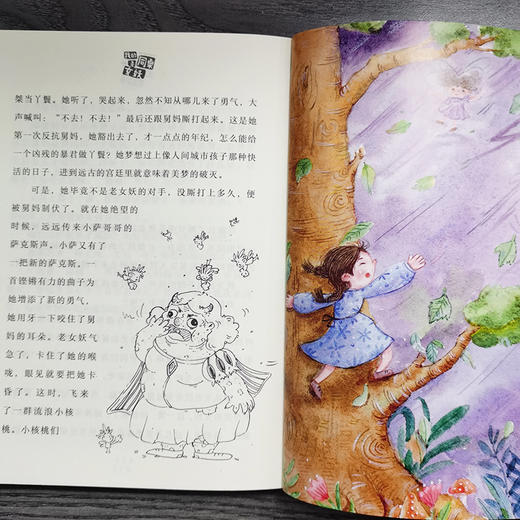 我的同桌是女妖
桀当丫鬟。她听了，哭起来，忽然不知从哪儿来了勇气，大
声喊叫：“不去！不去！”最后还跟舅妈厮打起来。这是她
第一次反抗舅妈，她豁出去了，才一点点的年纪，怎么能给
一个凶残的暴君做丫鬟？她梦想过上像人间城市孩子那种快
活的日子，进到远古的宫廷里就意味着美梦的破灭。
可是，她毕竟不是老女妖的对手，没厮打上多久，便
被舅妈制伏了。就在她绝望的
时候，远远传来小萨哥哥的
萨克斯声。小萨又有了
一把新的萨克斯。一
首铿锵有力的曲子为
她增添了新的勇气，
她用牙一下咬住了舅
妈的耳朵。老女妖气
急了，卡住了她的喉
咙，眼见就要把她卡
昏了。这时，飞来
了一群流浪小核
桃。小核桃们